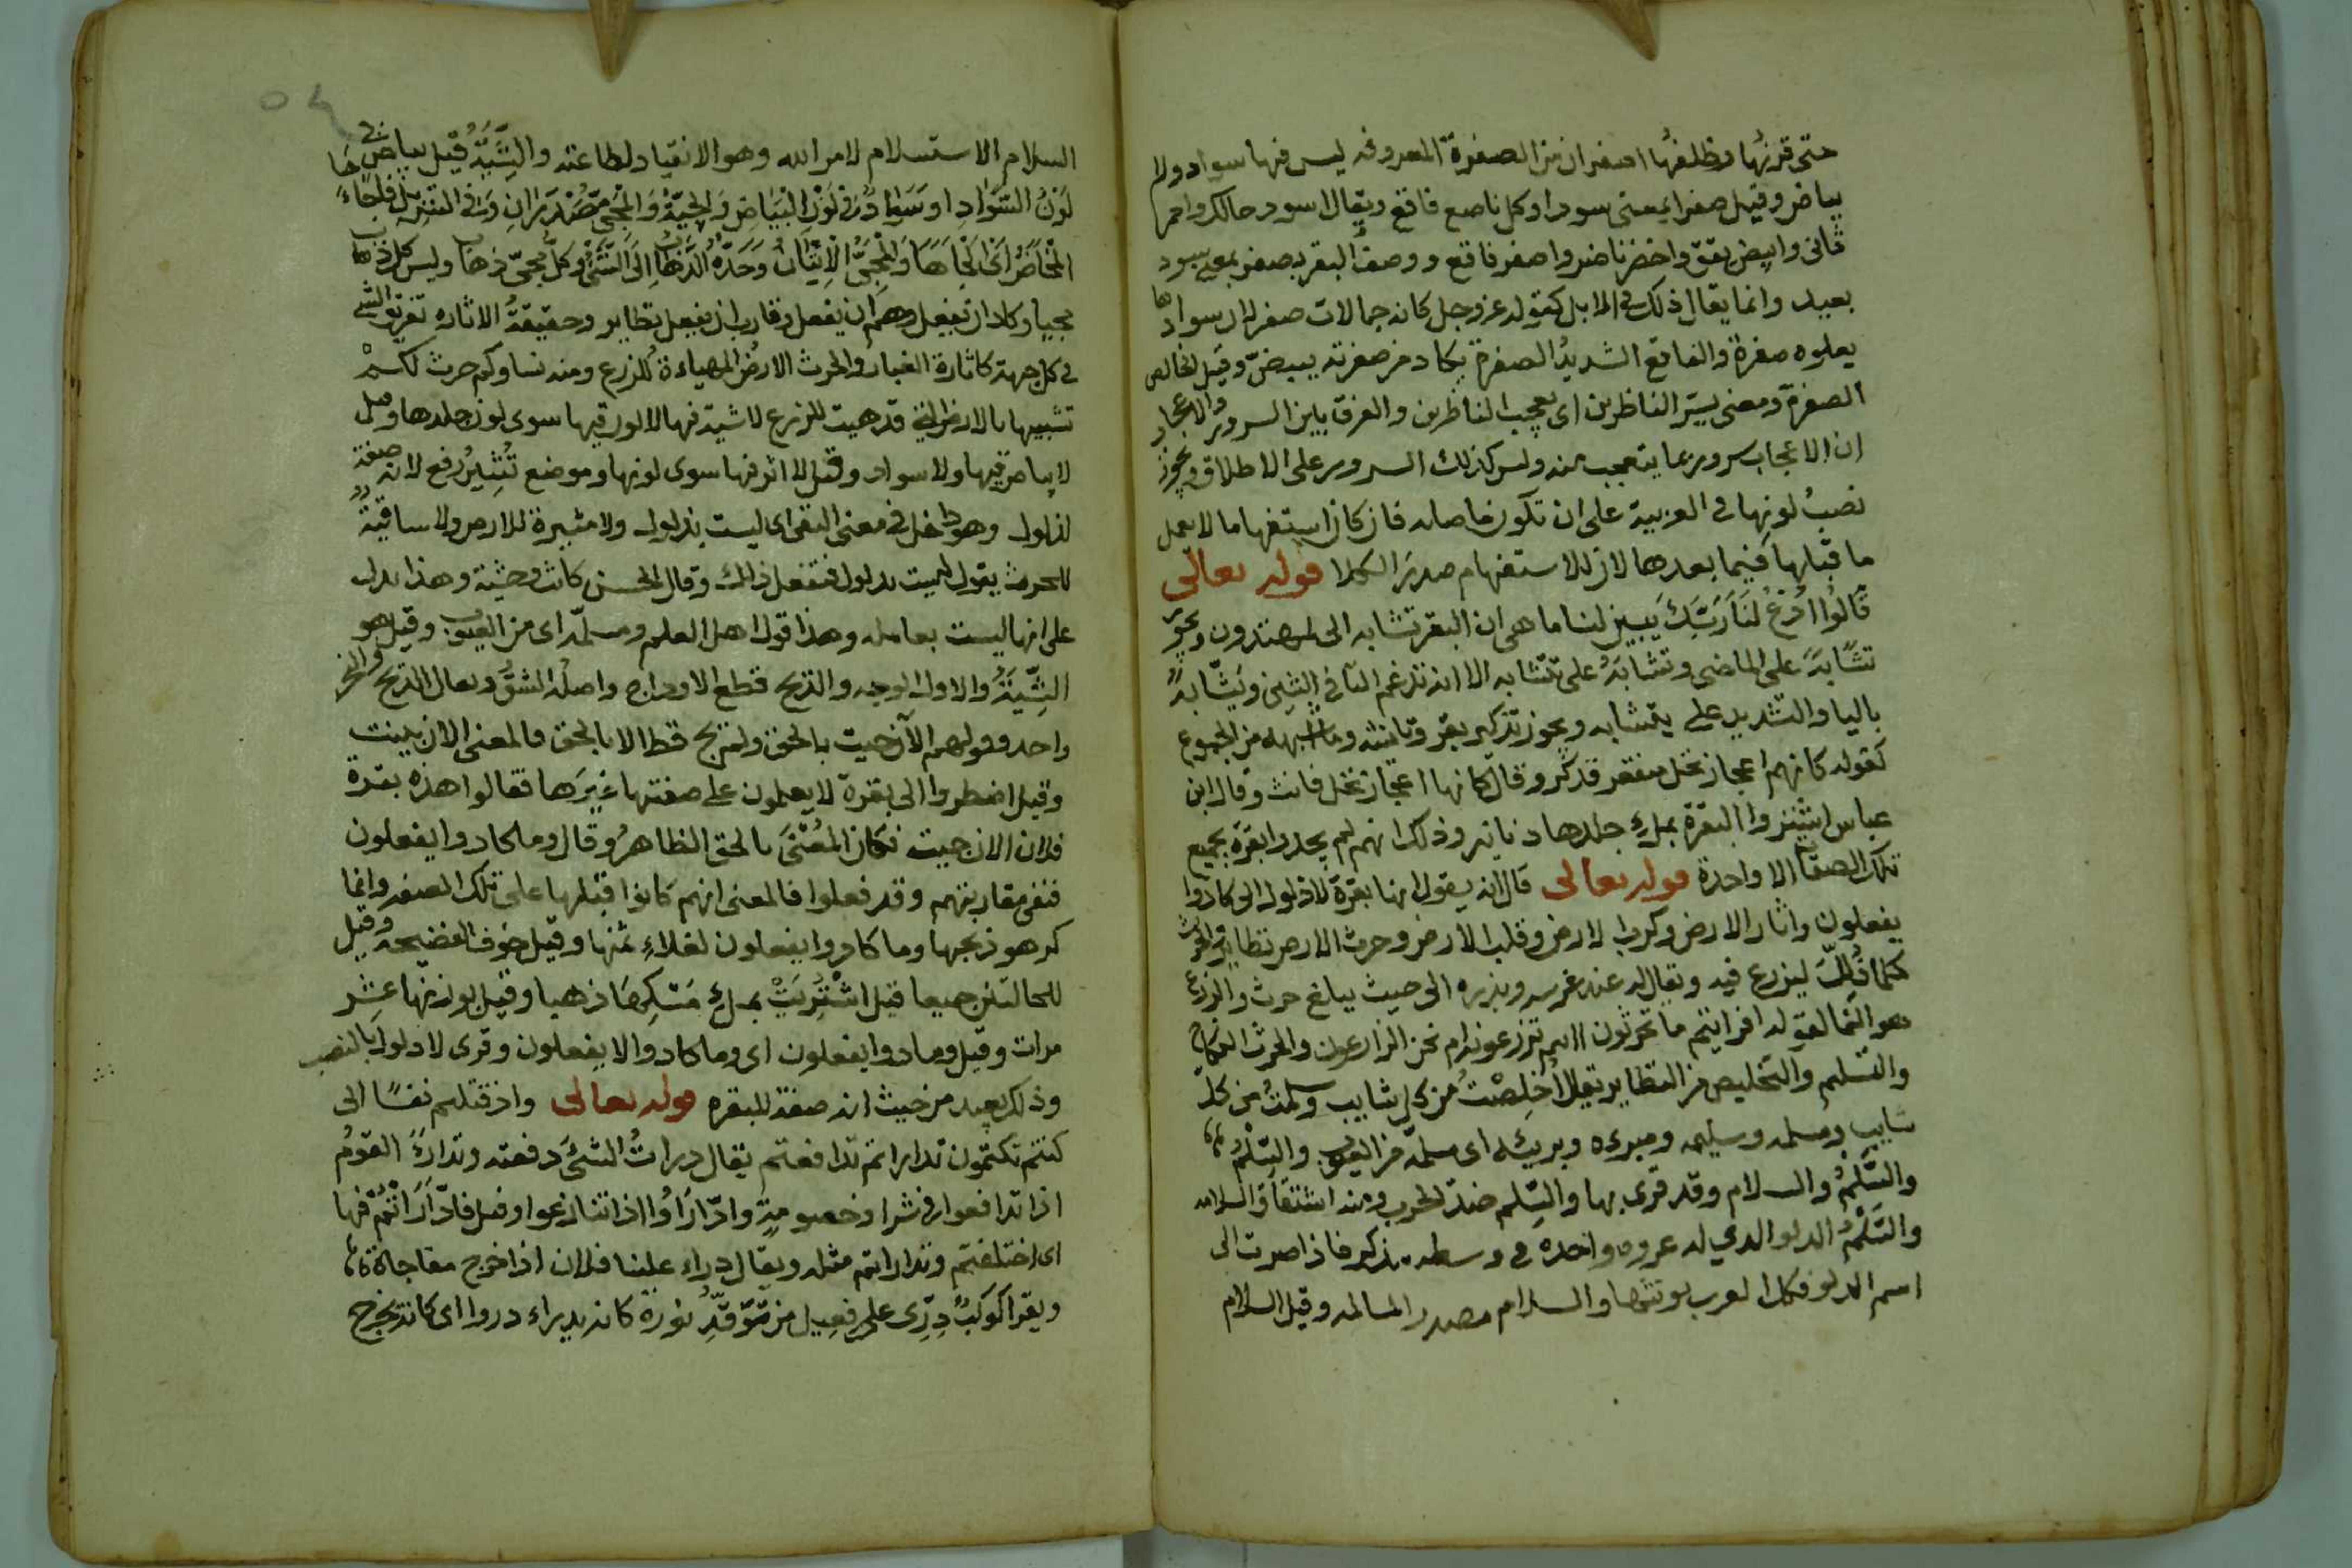 حتى قرنها وظلفها اصفران من الصفرة المعروفه ليس فيها سواد ولا
بياض وقيل صفرا بمعنى سودا وكل ناصع فاقع ويقال اسود حالك واحمر
قانى وابيض يقق واخضر ناضر واصفر فاقع ووصف البقر بصفر بمعنى سود
بعيد وانما يقال ذلك في الابل كقوله عز وجل كانه جمالات صفر لان سوادها
يعلوه صفرة والفاقع الشديدُ الصفرة يكاد من صفرته يبيضّ وقيل الخالص
الصفرة ومعنى يسرّ الناظرين اى يعجب الناظرين والفرق باين السرور والاعجاب
ان الاعجاب سرور بما يتعجب منه وليس كذلك السرور على الاطلاق ويجوز
نصبُ لونها في العربية على ان تكون ما صله فان كان استفهاما لا يعمل
ما قبلها فيما بعدها لان للاستفهام صدرَ الكلا قوله تعالى
قَالُوا ادْعُ لَنَا رَبَّكَ يَبين لنا ما هى ان البقر تشابه الى لمهتدون ويجوز
تشَابَهَ على الماضى وتشابَهُ على تتشابه الا انه تدغم التا في الشين ويَشّابهُ
باليا والتشديد على يتشابه ويجوز تذكير بقر وتانيثه وما اشبهه من الجموع
كقوله كانهم اعجاز نخل منقعر فذكر وقال كانها اعجاز نخل فانث وقال ابن
عباس اشتروا البقرة بملءِ جلدها دنانير وذلك انهم لم يجدوا بقرة بجميع
تلك الصفا الا واحدة قوله تعالى قال انه يقول انها بقرة لا ذلول الى كادوا
يفعلون واثار الارض وكربا لارض وقلب الارض وحرث الارض نظاير والحرث
كلما قُلِبَ ليزرع فيه ويقال له عند غرسه وبذره الى حيث يبلغ حرث والزرع
هو النما لقوله افرايتم ما تحرثون اانتم تزرعونه ام نحن الزارعون والحرث النكاح
والتسليم والتخليص من النظاير يقال اُخلِصْتُ من كل شايب وسلمتُ من كل
شايب ومسلمه وسليمه ومبرءه وبريئه اى مسلمة من العيوب والسِّلْمُ
والسَّلَمُ والسلام وقد قرى بها والسِّلم ضد الحرب ومنه اشتقاق السلامه
والسَّلْمُ الدلو الذي له عروه واحده في وسطه يذكر فاذا صرت الى
اسم الدلو فكل العرب يونثها والسلام مصدر المسالمه وقيل السلام
السلام الاستسلام لامر الله وهو الانقياد لطاعته والشِّيَةُ قيل بياض في
لَوْنُ السَّوَادِ او سَوَادٌ في لَوْنِ البَيَاضِ وَالجِيَّةُ وَالْمَجِىُّ مَصْدَرَانِ وَفى التنزيل فاجاءَهَا
المخَاضُ اَىْ اَلجَاهَا وَالْمَجِىُّ الْاِتْيَانُ وَحَدّهُ الذَّهَابُ اِلَى الشَّىْءِ وكل مَجِىّ ذهاب وليس كل ذهاب
مجيا وكاد ان يفعل وهم ان يفعل وقارب ان يفعل نظاير وحقيقةُ الاثاره تفريق الشي
في كل جهة كاثارة الغبار والحرث الارض المهياءة للزرع ومنه نساوكم حرث لكمْ
تشبيها بالارض التى قد هيت للزرع لا شية فيها لا لون فيها سوى لون جلدها وقيل
لا بياض فيها ولا سواد وقيل لا اثر فيها سوى لونها وموضع تُثِيرُ رفع لانه صفة
لذلول وهو داخل في معنى النفى اى ليست بذلول ولا مثيرة للارض ولا ساقيةٌ
للحرث يقول ليست بذلول فتفعل ذلك وقال الحسن كانت وحشية وهذا يدل
على انها ليست بعامله وهذا قول اهل العلم ومسلّمه اى من العيوب وقيل هو
الشِّيَةُ والاول الوجه والذبح قطع الاوداج واصله الشقُ ويقال الذبح والنحر
واحد وقولهم الآن جيت بالحق ولم تجئ قط الا بالحق فالمعنى الان بينت
وقيل اضطروا الى بقرة لا يعلمون على صفتها غيرَها فقالوا هذه بقرة
فلان الان جيت فكان المعْنىَ بالحق الظاهرُ وقال وما كادوا يفعلون
فنفى مقاربتهم وقد فعلوا فالمعنى انهم كانوا قبلها على تلك الصفه وانما
كرهو ذبحها وما كادوا يفعلون لغلاءِ ثمنها وقيل خوف الفضيحةُ وقيل
للحالتين جميعا قيل اشْتُرِيَتْ بملءِ مَسْكِهَا ذهبا وقيل بوزنها عشر
مرات وقيل وما دوا يفعلون اى وما كادوا الا يفعلون وقرى لا ذلول بالنصب
وذلك بعيد من حيث انه صفة للبقره قوله تعالى واذ قتلتم نفسًا الى
كنتم تكتمون تداراتم تدافعتم يقال دراتُ الشىَ دفعته وتدارَءَ القومُ
اذا تدافعوا في شرا وخصومةٍ وادّارَاوُا اذا تنازعوا وقيل فادّارَاتُمْ فيها
اى اختلفتم وتداراتم مثله ويقال دراء علينا فلان اذا خرج مفاجاة
ويقرا كوكبٌ دِرّى على فعيل من تَوَقّدِ نوره كانه يدراء دروا اى كانه يخرج